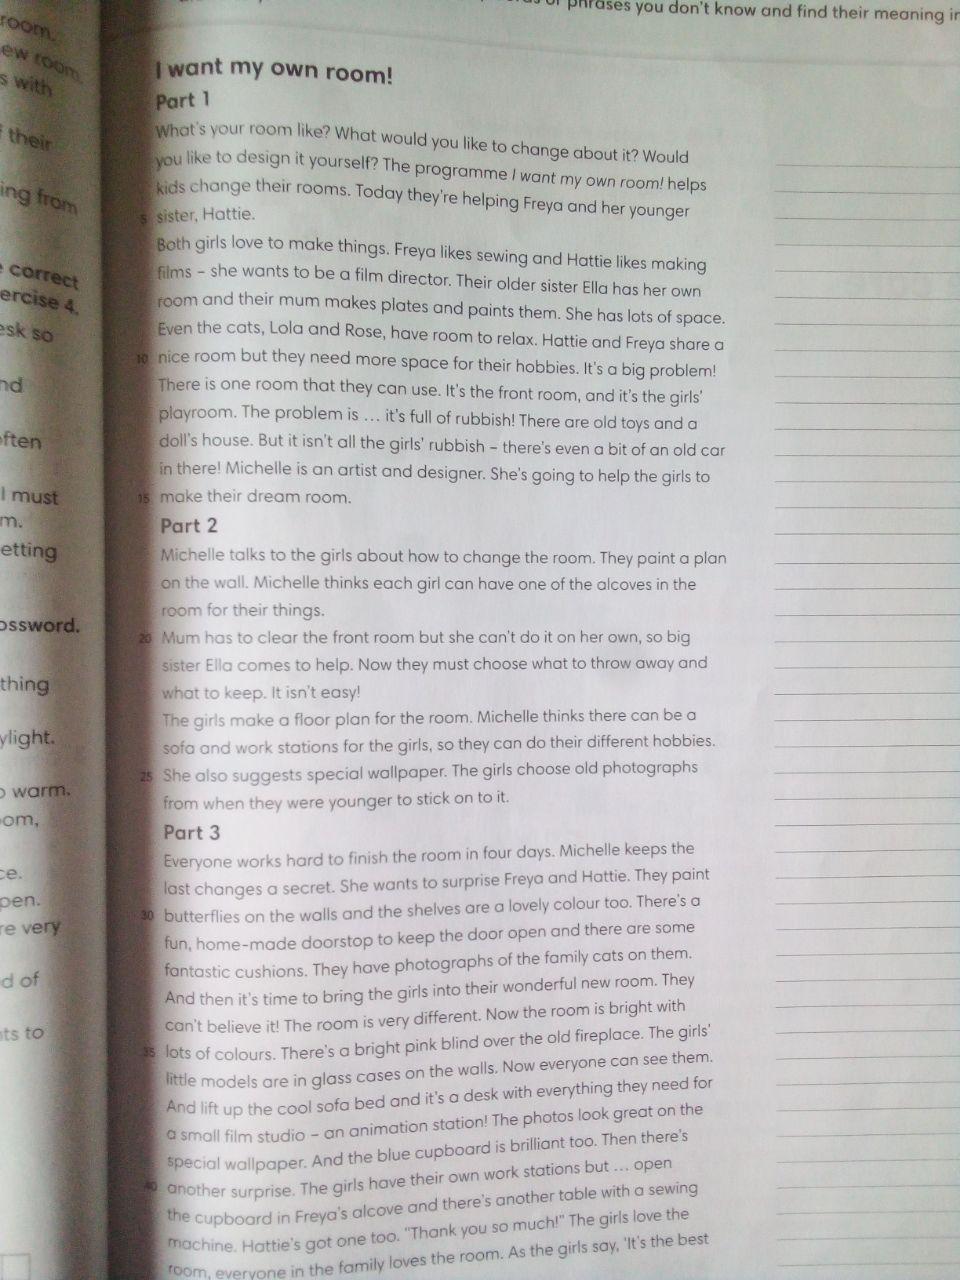 phrases you don't know and find their meaning in
room.
ew room.
s with
f their
ing from
correct
ercise 4.
esk so
nd
often
I must
m.
etting
ossword.
thing
ylight.
o warm.
om,
ce.
pen.
re very
d of
ts to
I want my own room!
Part 1
What's your room like? What would you like to change about it? Would
you like to design it yourself? The programme I want my own room! helps
kids change their rooms. Today they're helping Freya and her younger
5 sister, Hattie.
Both girls love to make things. Freya likes sewing and Hattie likes making
films – she wants to be a film director. Their older sister Ella has her own
room and their mum makes plates and paints them. She has lots of space.
Even the cats, Lola and Rose, have room to relax. Hattie and Freya share a
10 nice room but they need more space for their hobbies. It's a big problem!
There is one room that they can use. It's the front room, and it's the girls'
playroom. The problem is … it's full of rubbish! There are old toys and a
doll's house. But it isn't all the girls' rubbish – there's even a bit of an old car
in there! Michelle is an artist and designer. She's going to help the girls to
15 make their dream room.
Part 2
Michelle talks to the girls about how to change the room. They paint a plan
on the wall. Michelle thinks each girl can have one of the alcoves in the
room for their things.
20 Mum has to clear the front room but she can't do it on her own, so big
sister Ella comes to help. Now they must choose what to throw away and
what to keep. It isn't easy!
The girls make a floor plan for the room. Michelle thinks there can be a
sofa and work stations for the girls, so they can do their different hobbies.
25 She also suggests special wallpaper. The girls choose old photographs
from when they were younger to stick on to it.
Part 3
Everyone works hard to finish the room in four days. Michelle keeps the
last changes a secret. She wants to surprise Freya and Hattie. They paint
30 butterflies on the walls and the shelves are a lovely colour too. There's a
fun, home-made doorstop to keep the door open and there are some
fantastic cushions. They have photographs of the family cats on them.
And then it's time to bring the girls into their wonderful new room. They
can't believe it! The room is very different. Now the room is bright with
35 lots of colours. There's a bright pink blind over the old fireplace. The girls'
little models are in glass cases on the walls. Now everyone can see them.
And lift up the cool sofa bed and it's a desk with everything they need for
a small film studio – an animation station! The photos look great on the
special wallpaper. And the blue cupboard is brilliant too. Then there's
40 another surprise. The girls have their own work stations but … open
the cupboard in Freya's alcove and there's another table with a sewing
machine. Hattie's got one too. "Thank you so much!" The girls love the
room, everyone in the family loves the room. As the girls say, 'It's the best